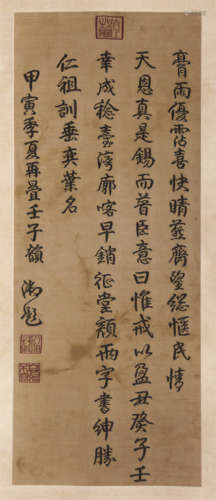 膏雨優霑喜快晴 茲齊望總愜民情
天恩真是錫而普 臣意曰惟戒以盈 丑癸子壬
幸成稔 臺灣廓喀早銷征 堂顏兩字書紳勝
仁祖訓垂奕葉名
甲寅季夏再疊壬子韻
御題